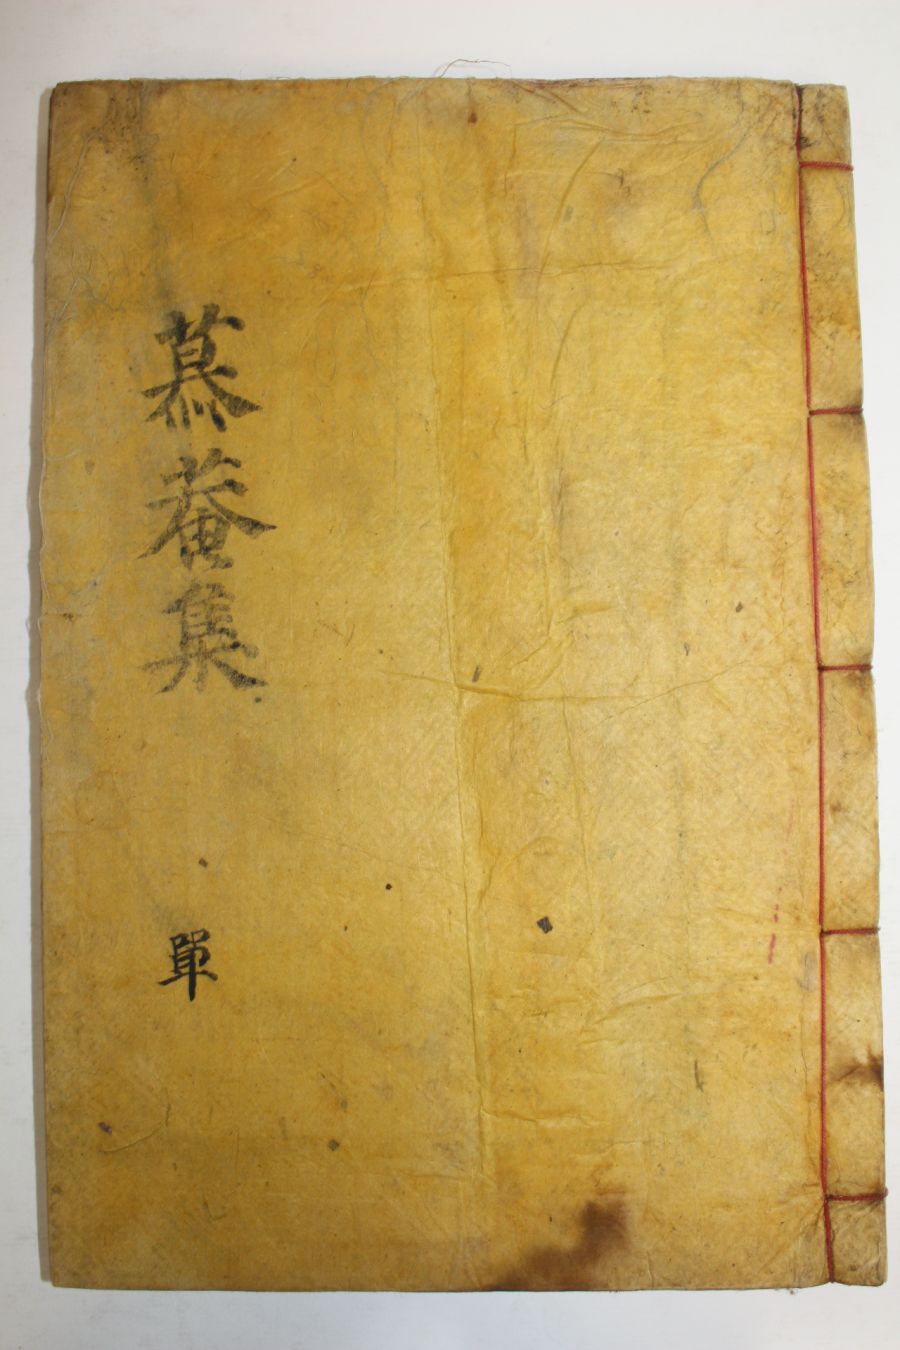 慕菴集
單